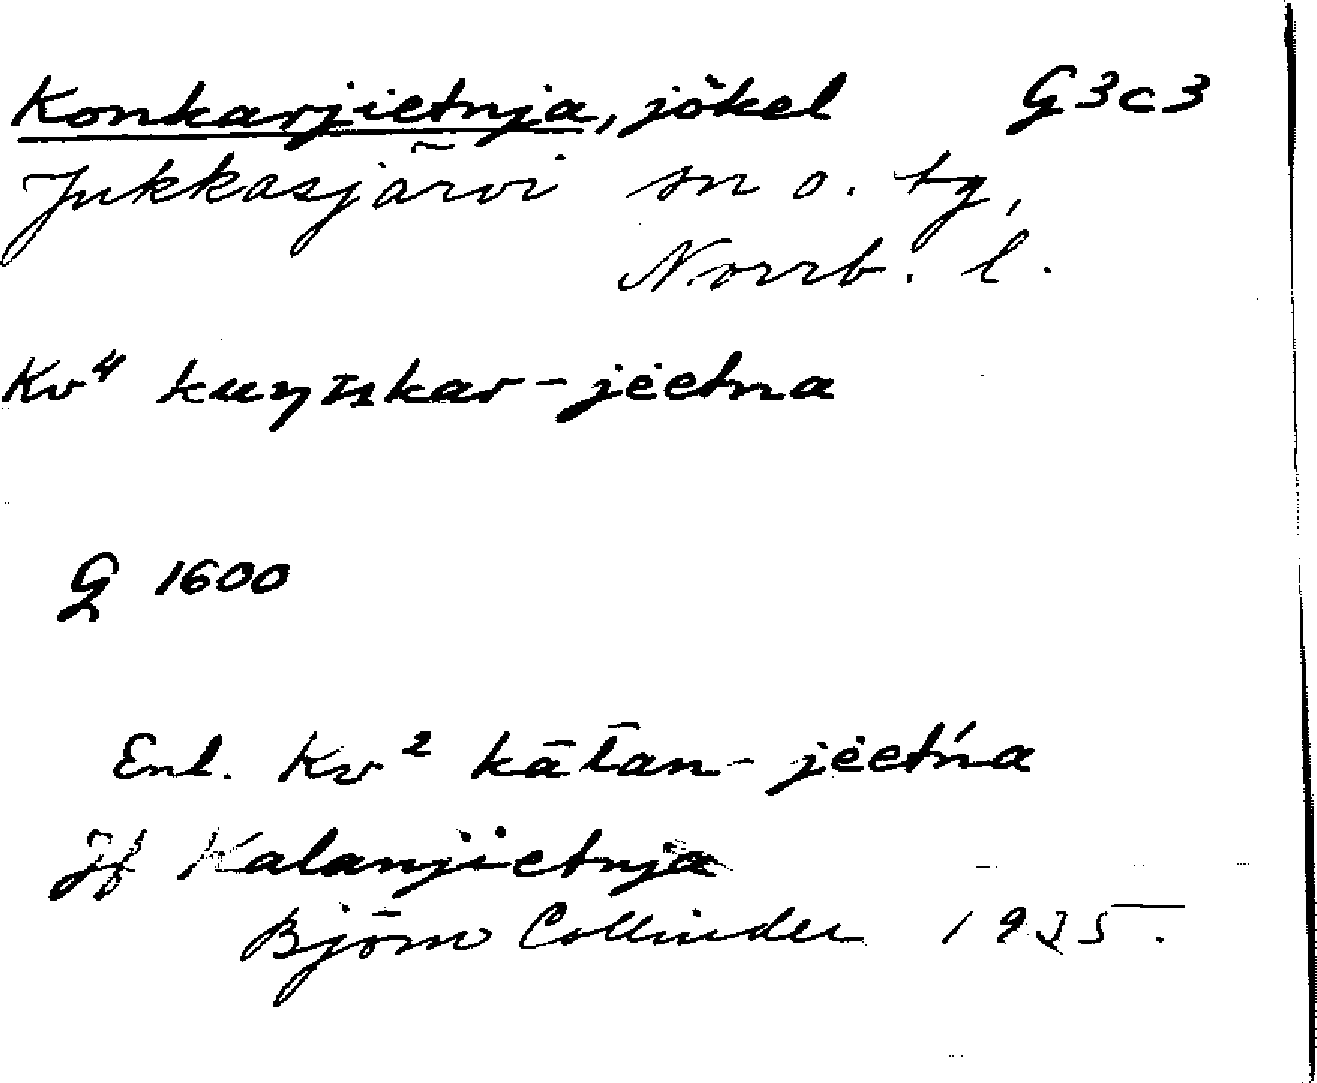 Konkarjietnja, jökel G3c3
Jukkasjärvi sn o. tg,
Norrb. l.
Kv⁴ -jėetna
G 1600
Enl. Kv² kāťan- jėet́n'a
Jf Kalanjietnja
Björn Collinder 1935.